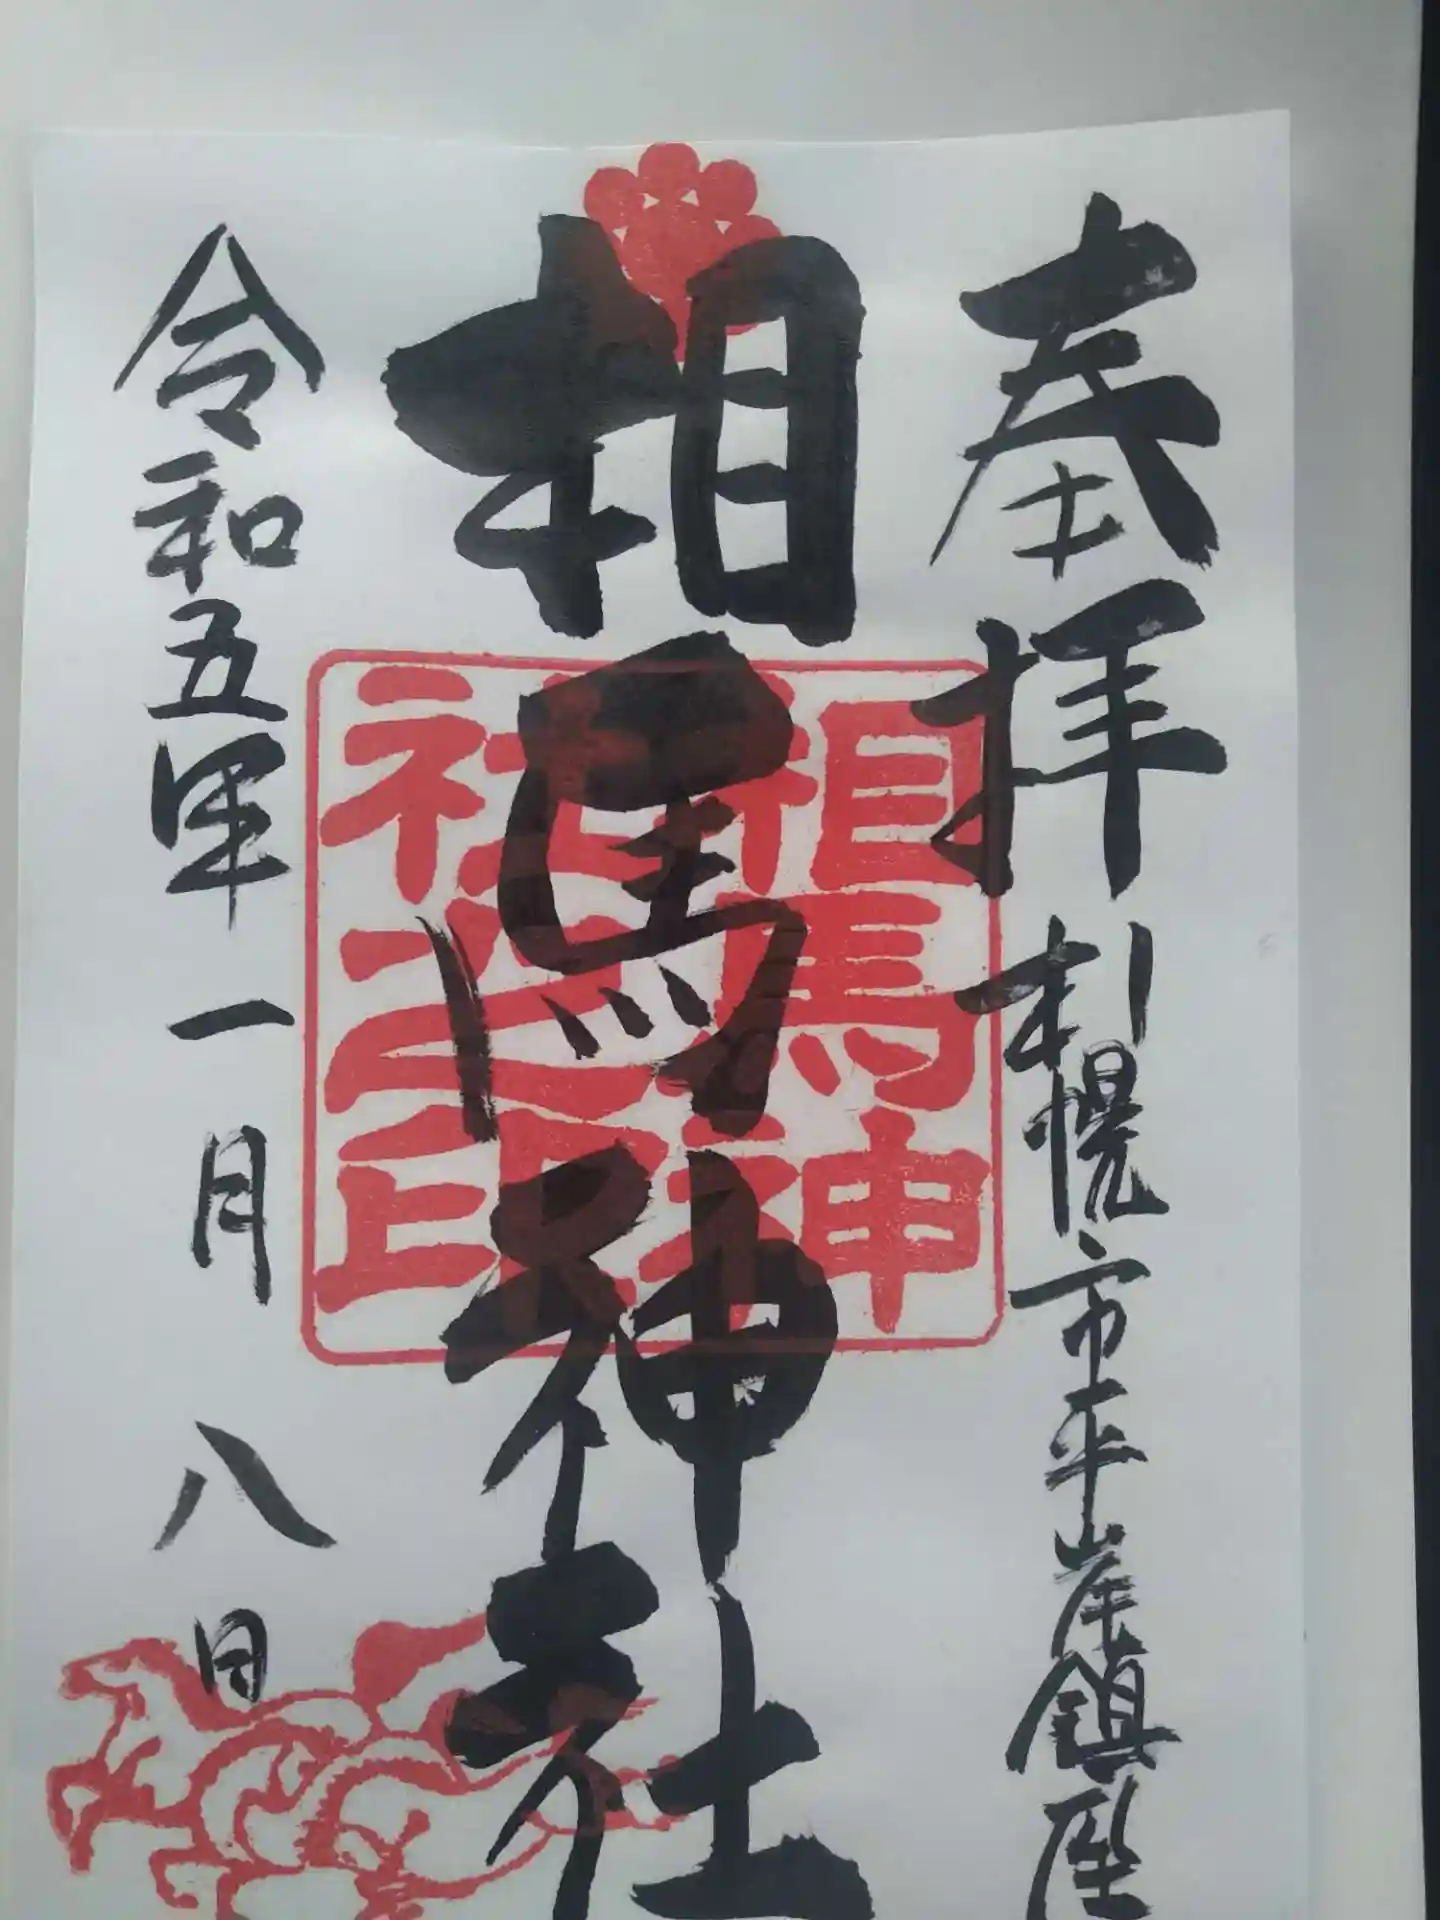 奉拝 札幌市平岸鎮座
相馬神社
相馬神
社之印
令和五年一月八日